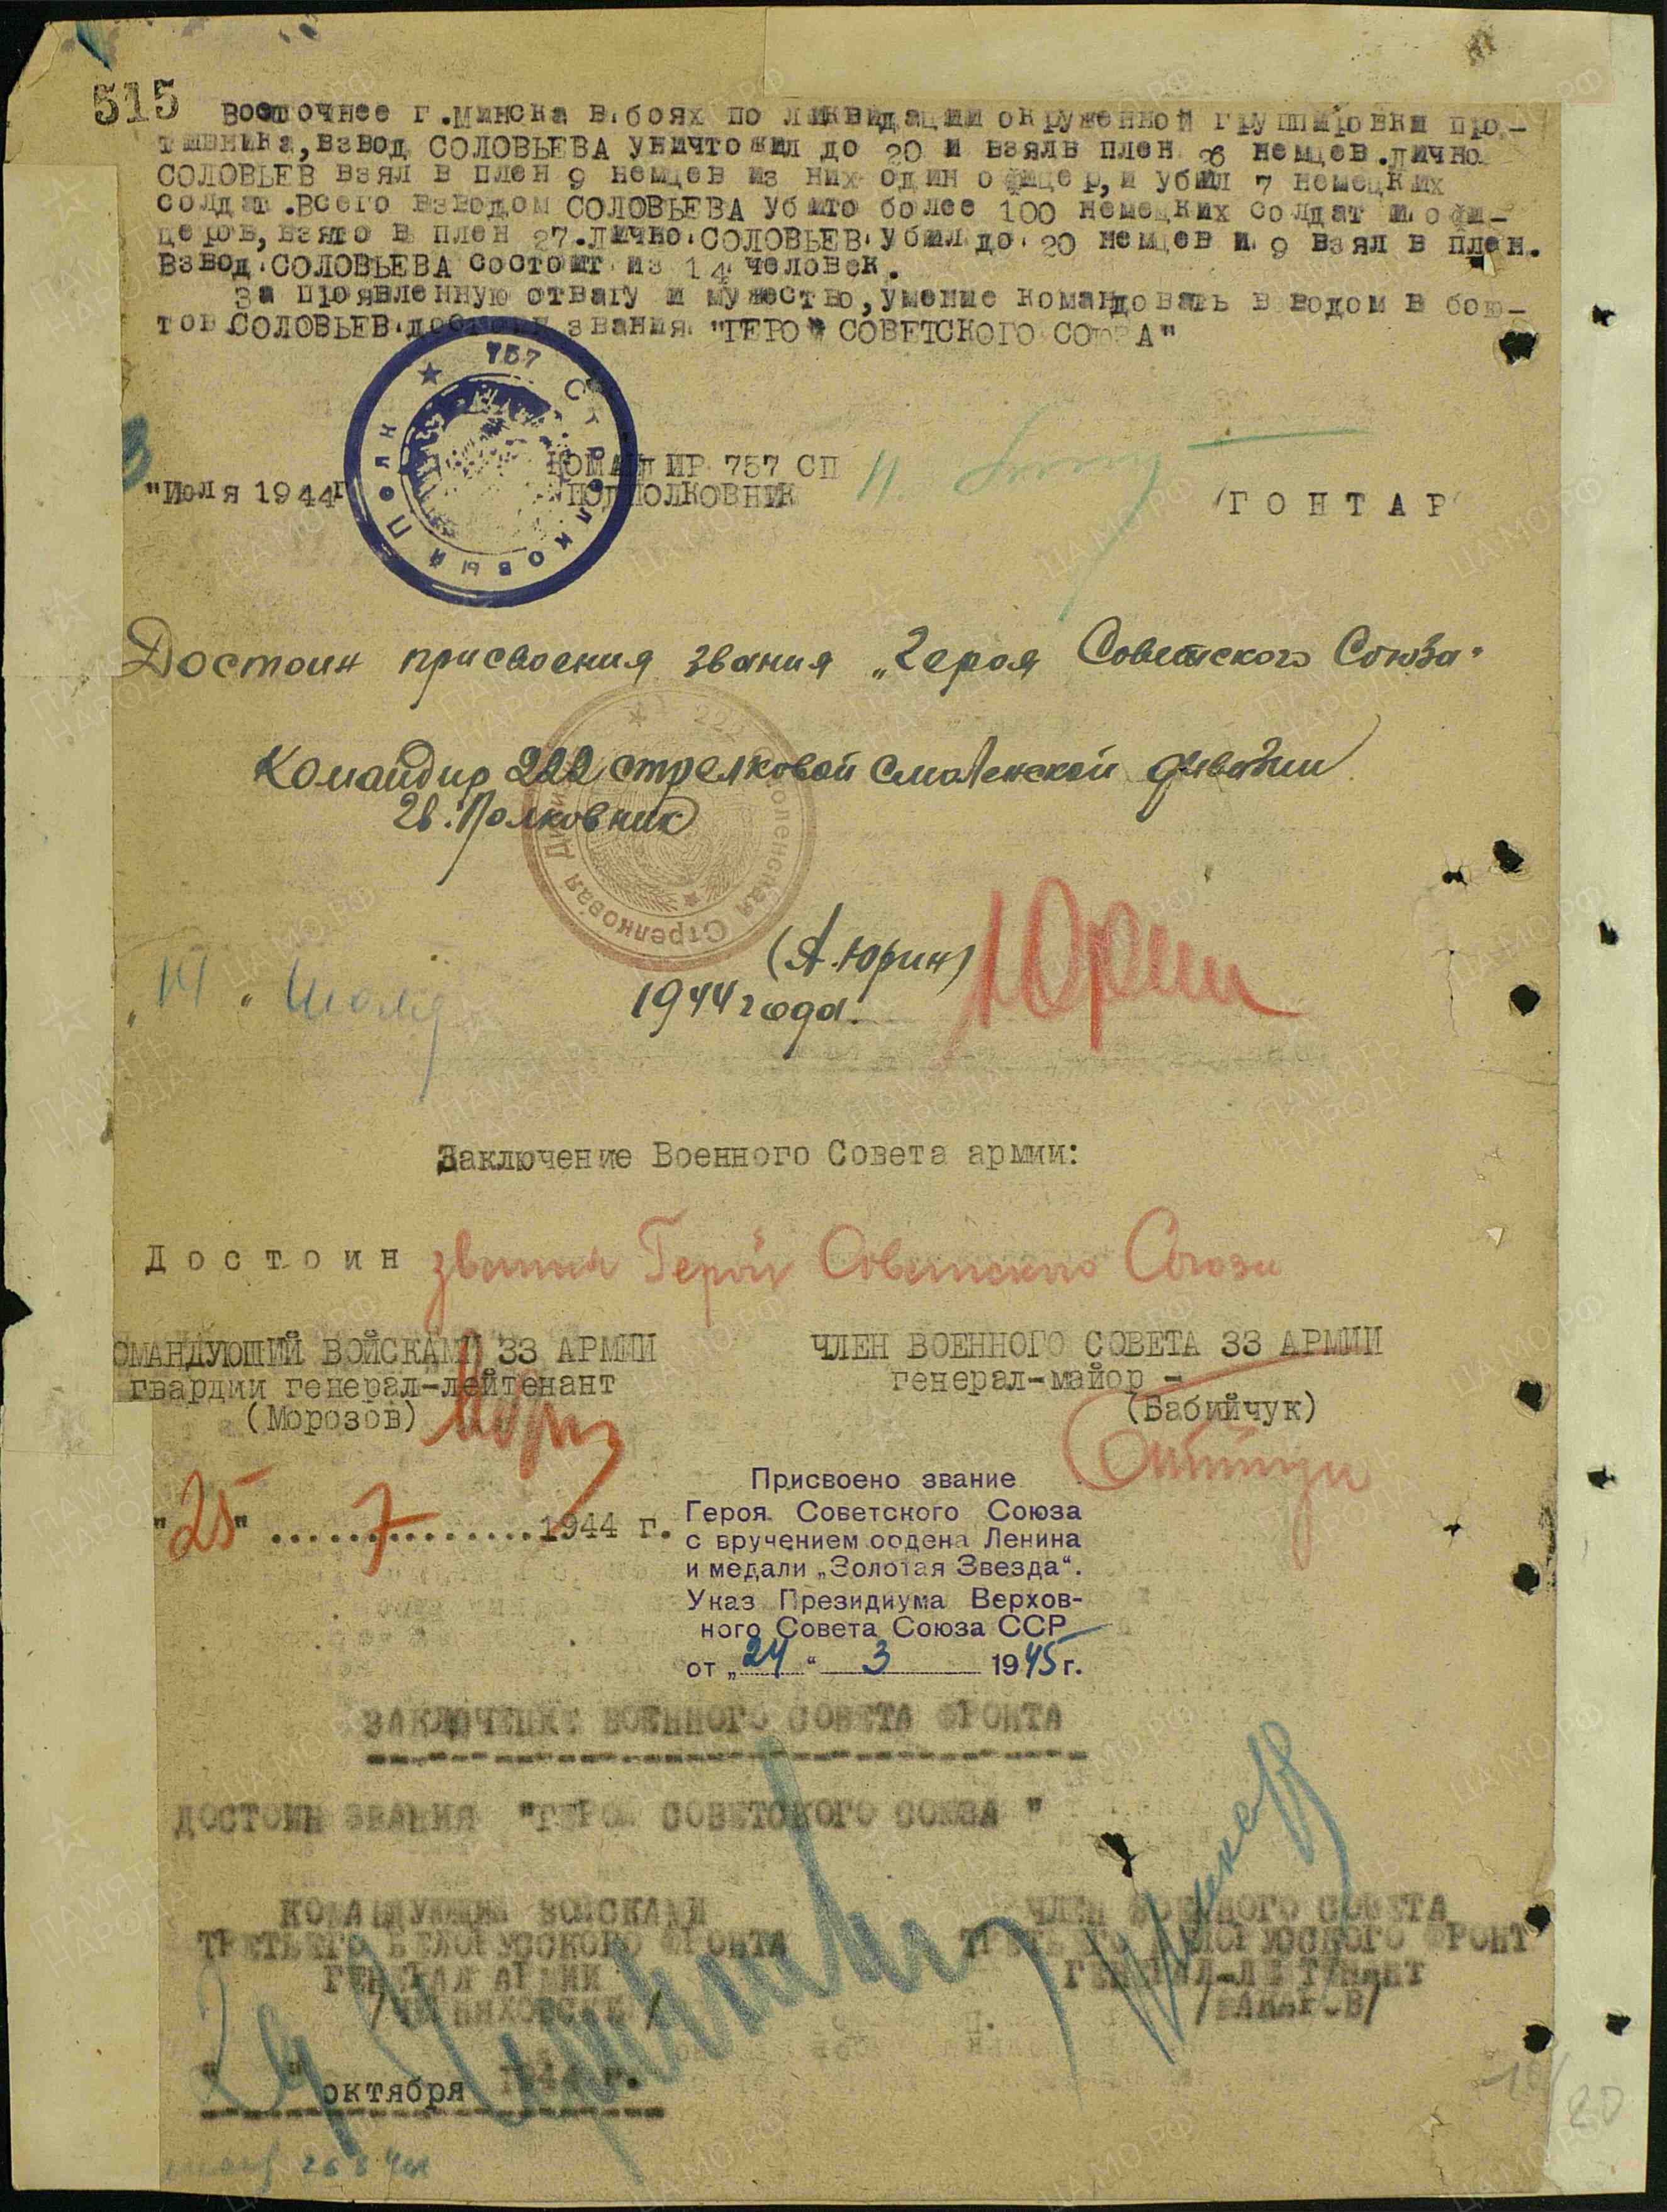 515
Восточнее г.Минска в боях по ликвидации окруженной группировки про-
тивника, взвод СОЛОВЬЕВА уничтожил до 20 и взял в плен 26 немцев. лично
СОЛОВЬЕВ взял в плен 9 немцев из них один офицер, и убил 7 немецких
солдат. Всего взводом СОЛОВЬЕВА убито более 100 немецких солдат и офи-
церов, взято в плен 27. Лично СОЛОВЬЕВ убил до 20 немцев и 9 взял в плен.
Взвод СОЛОВЬЕВА состоит из 14 человек.
За проявленную отвагу и мужество, умение командовать взводом в бою-
тов.СОЛОВЬЕВ достоин звания "ГЕРОЙ СОВЕТСКОГО СОЮЗА"
757 Стрелковый Полк
КОМАНДИР 757 СП
"Июля 1944г
ПОДПОЛКОВНИК
/ГОНТАР
Достоин присвоения звания „Героя Советского Союза"
Командир 222 стрелковой смоленской дивизии
Гв. Полковник
222 Смоленская Стрелковая Дивизия
(А. Юрин) Юрин
„19" июля 1944 года.
Заключение Военного Совета армии:
Достоин звания Герой Советского Союза
ОМАНДУЮЩИЙ ВОЙСКАМИ 33 АРМИИ
гвардии генерал-лейтенант
(Морозов)
ЧЛЕН ВОЕННОГО СОВЕТА 33 АРМИИ
генерал-майор -
(Бабийчук)
"25" 7 1944 г.
Присвоено звание
Героя Советского Союза
с вручением ордена Ленина
и медали „Золотая Звезда".
Указ Президиума Верхов-
ного Совета Союза ССР
от „24" 3 1945 г.
ЗАКЛЮЧЕНИЕ ВОЕННОГО СОВЕТА ФРОНТА
ДОСТОИН ЗВАНИЯ "ГЕРОЯ СОВЕТСКОГО СОЮЗА"
КОМАНДУЮЩИЙ ВОЙСКАМИ
ТРЕТЬЕГО БЕЛОРУССКОГО ФРОНТА
ГЕНЕРАЛ АРМИИ
/ЧЕРНЯХОВСКИЙ/
ЧЛЕН ВОЕННОГО СОВЕТА
ТРЕТЬЕГО БЕЛОРУССКОГО ФРОНТ
ГЕНЕРАЛ-ЛЕЙТЕНАНТ
/МАКАРОВ/
октября 1944 г.
20
ПАМЯТЬ НАРОДА
ЦАМО.РФ